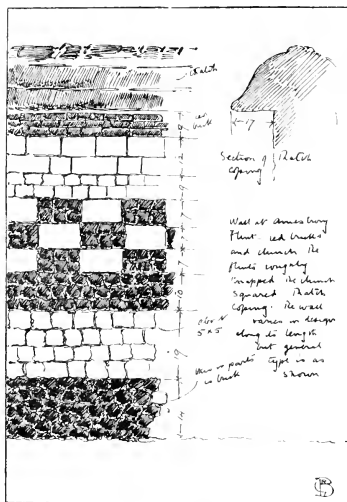 thatch
red
brick
17
Section of } thatch
coping
Wall at Amesbury
Flint. red bricks
and clunch the
flints roughly
snapped the clunch
squared thatch
coping. the wall
varies in design
along its length
but general
type is as
shown
5 x 5
in parts
is brick